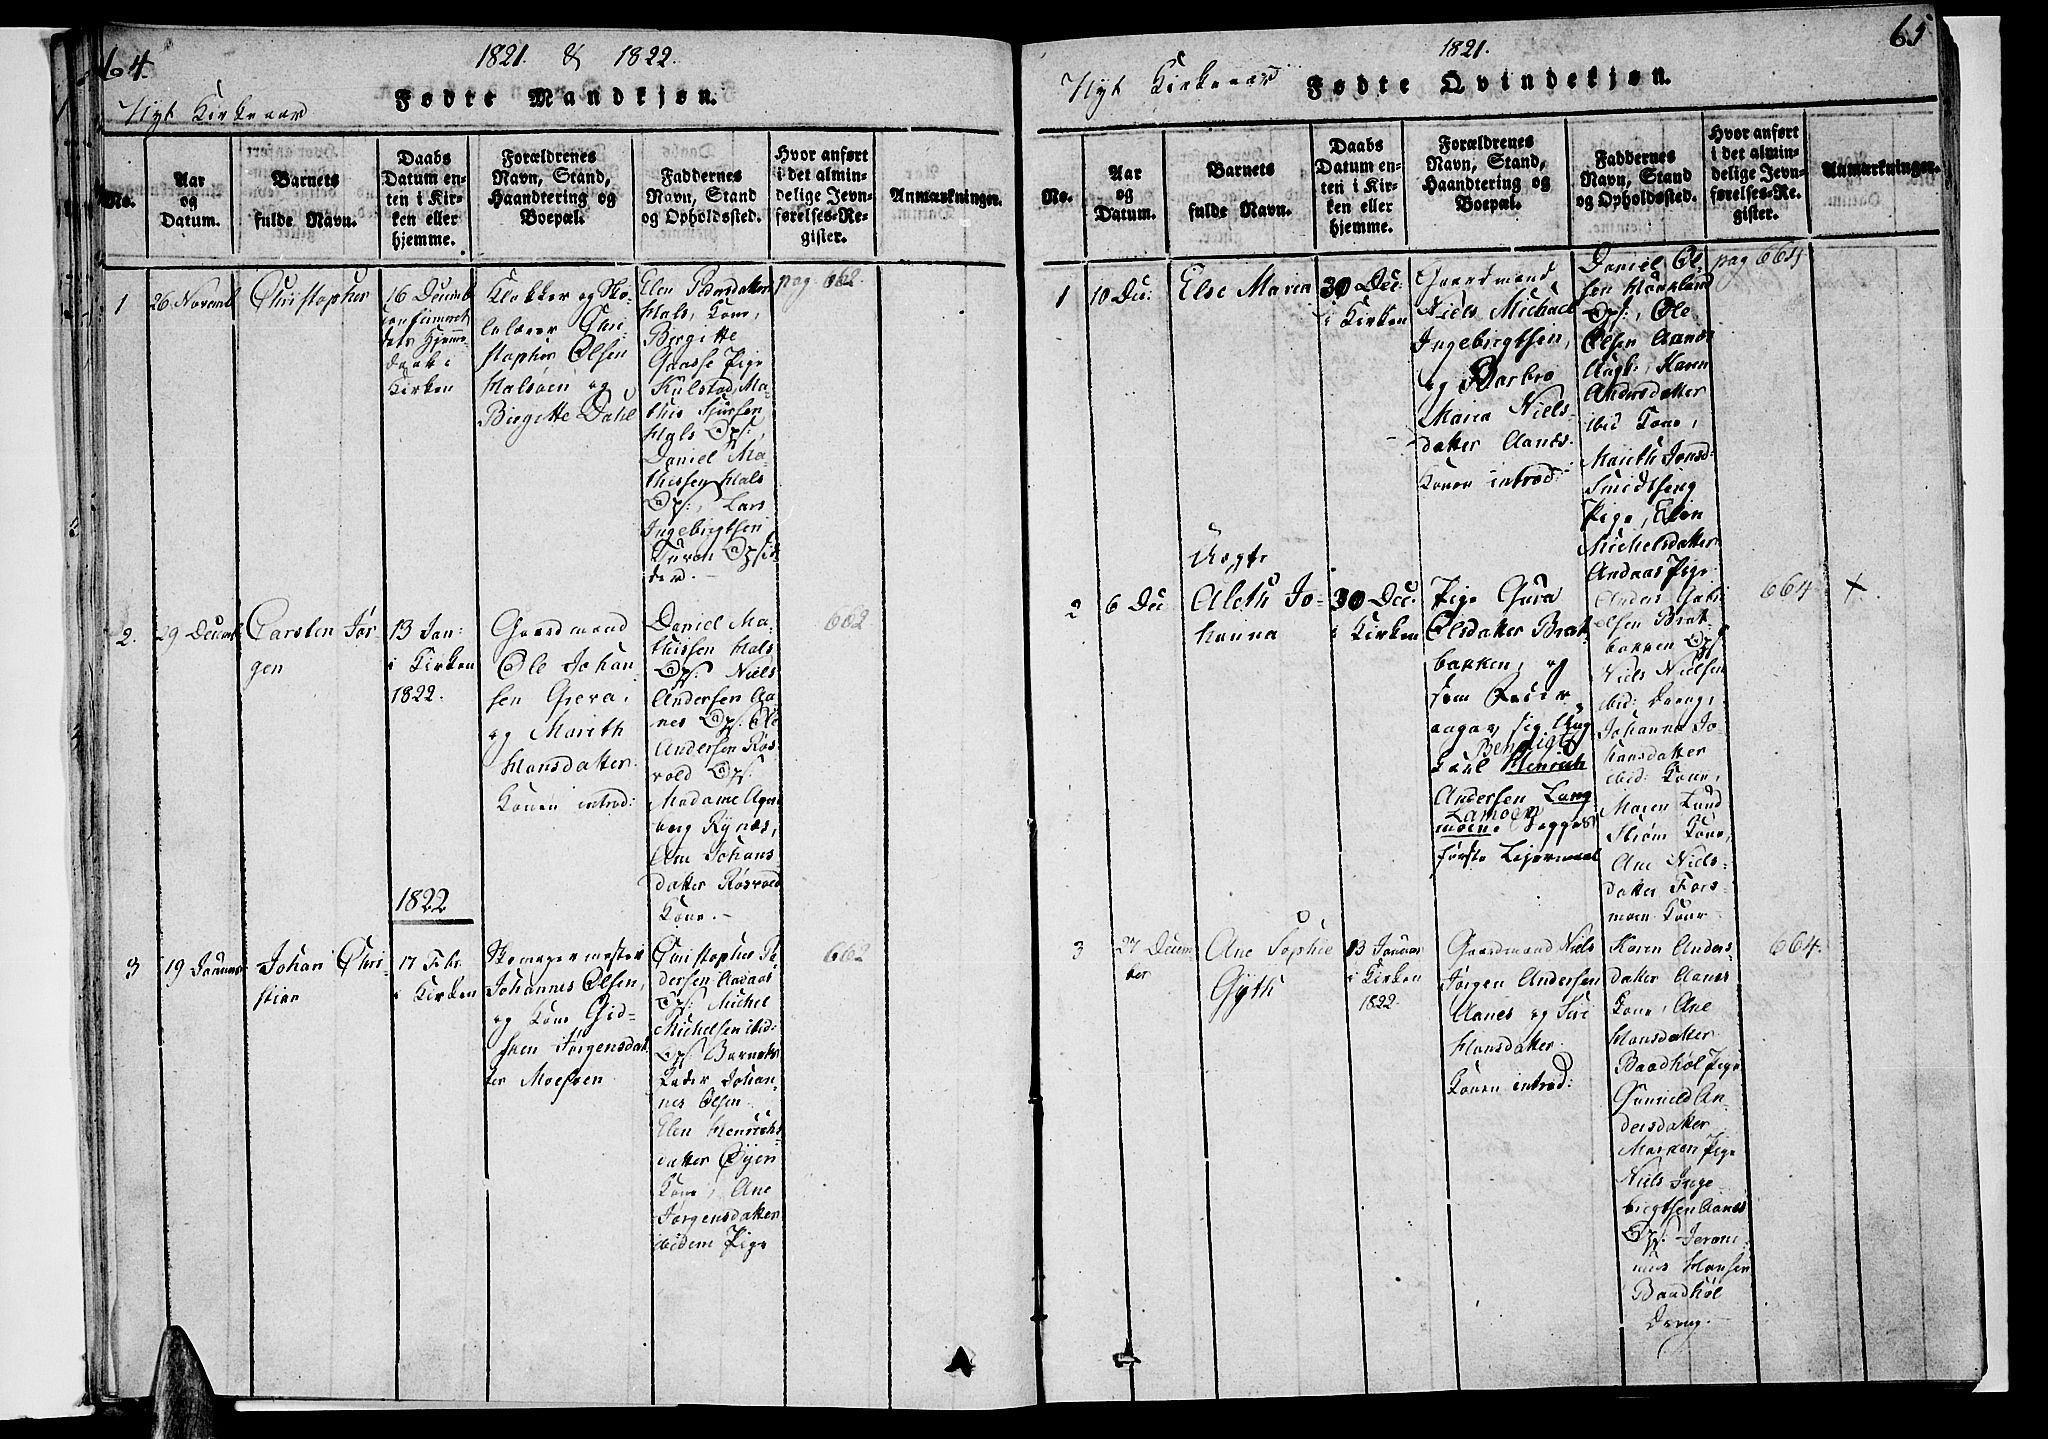 64.
1821. & 1822.
Nyt Kirkeaar
Fødte Mandkjøn.
No.
Aar
og
Datum.
Barnets
fulde Navn.
Daabs
Datum en-
ten i Kir-
ken eller
hjemme.
Forældrenes
Navn, Stand,
Haandtering og
Boepæl.
Faddernes
Navn, Stand
og Opholdssted.
Hvor anført
i det almin-
delige Jevn-
førelses-Re-
gister.
Anmærkninger.
1
26 Novemb
Christopher
16 Decemb
Kirken
Klokker og Sko-
lelærer Chri-
stopher Olsen
Halsøen og
Birgitte Dahl
Elen Pedersdatter
Hals, Kone,
Birgitte
Pige
Kulstad, Ma-
this
Hals Ops:
Daniel Ma-
thissen Hals
Ops:, Lars
Ingebrigtsen
pag. 662
2.
29 Decemb
Carsten Jør-
gen
13 Jan:
i Kirken
1822.
Gaardmand
Ole Johan-
sen
og Marith
Hansdatter.
Konen introd:
Daniel Ma-
thissen Hals
Ops: Niels
Andersen Aa-
nes Ops: Ole
Andersen Røs-
vold Ops:
Madame
Rynes,
Ane Johans
datter Røsvold
Kone.-
662
1822
3
19 Januar
Johan Chri-
stian
17 Febr.
i Kirken
Skomagermester
Johannes Olsen,
og Kone Gid-
sken Jørgensdat-
ter Moeshen
Christopher Pe-
dersen Andaas
Ops: Michel
Michelsen ibid:
Ops: Barnets
Fader Johan-
nes Olsen
Elen Henrichs
datter Øyen
Kone, Ane
Jørgensdatter
ibidem Pige
662
65
1821.
Nyt Kirkeaar
Fødte Qvindekjøn.
No.
Aar
og
Datum.
Barnets
fulde Navn.
Daabs
Datum en-
ten i Kir-
ken eller
hjemme.
Forældrenes
Navn, Stand,
Haandtering og
Boepæl.
Faddernes
Navn, Stand
og Opholdssted.
Hvor anført
i det almin-
delige Jevn-
førelses-Re-
gister.
Anmærkninger.
1
10 Dec:
Else Maria
30 Dec:
i Kirken
Gaardmand
Niels Michael
Ingebrigtsen,
og Barbro
Maria Niels-
datter Aanes.
Konen introd:
Daniel Ol-
sen
Ops:, Ole
Olsen Aanes
Karen
Andersdatter
ibid Kone,
Marith Jonsd:
Smedseng
Pige, Elen
Michelsdatter
Andaas Pige
pag 664
2
6 Dec
Uægte
Aleth Jo-
hanna
30 Dec.
i Kirken
Pige Gura
Olsdatter Brat-
bakken, og
som Fader
angav sig Ung
Bendigt
Karl Henrich
Andersen Lang
moen. Begges
første Leiermaal
Anders Gabri
elsen Brat-
bakken Ops
Niels Nielsen
ibid: Dreng,
Johanna Jo-
hansdatter
ibid: Kone,
Maren Lund
Strøm Kone,
Ane Niels-
datter Fors-
moen Kone
664
+
3
27 Decem-
ber
Ane Sophie
Gyth
13 Januar
i Kirken
1822.
Gaardmand Niels
Jørgen Andersen
Aanes og Siri
Hansdatter.
Konen introd:
Karen Anders-
datter Aanes
Kone, Ane
Hansdatter
Baadhøl Pige
Gunnild An-
dersdatter
Marken Pige
Niels Inge-
brigtsen Aanes
Ops: Jeroni-
mus Hansen
Baadhøl
Dreng.-
664.